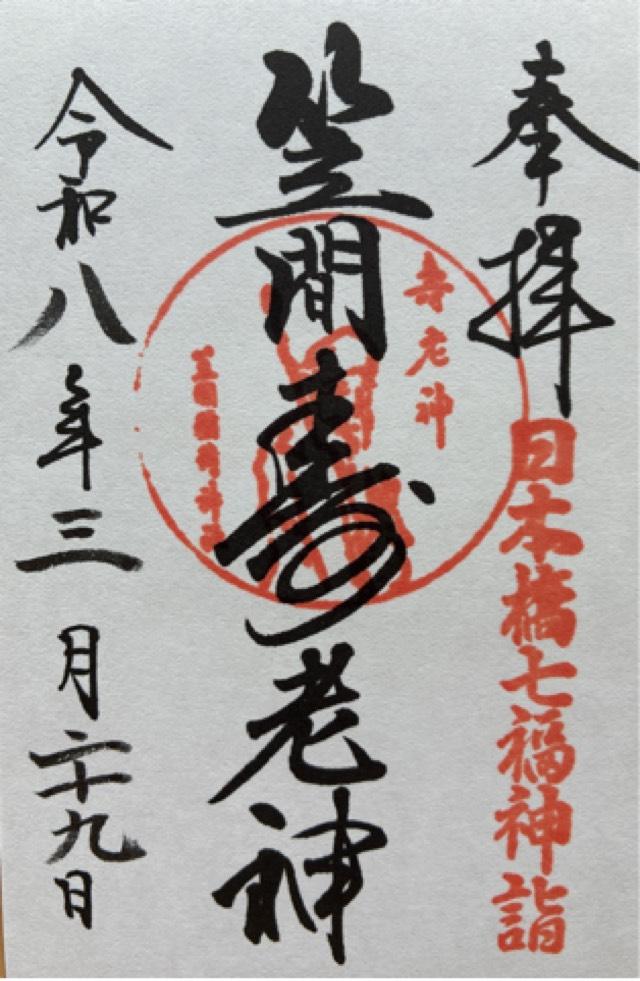 奉拝
日本橋七福神詣
寿老神
笠間寿老神
笠間稲荷神社
令和八年三月二十九日